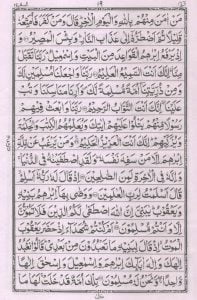 مَنْ اٰمَنَ مِنْهُمْ بِاللّٰهِ وَالْیَوْمِ الْاٰخِرِ قَالَ وَمَنْ كَفَرَ فَاُمَتِّعُهٗ
قَلِیْلًا ثُمَّ اَضْطَرُّهٗۤ اِلٰى عَذَابِ النَّارِ وَبِئْسَ الْمَصِیْرُ وَ
اِذْ یَرْفَعُ اِبْرٰهٖمُ الْقَوَاعِدَ مِنَ الْبَیْتِ وَاِسْمٰعِیْلُ رَبَّنَا تَقَبَّلْ
مِنَّا اِنَّكَ اَنْتَ السَّمِیْعُ الْعَلِیْمُ رَبَّنَا وَاجْعَلْنَا مُسْلِمَیْنِ لَكَ
وَمِنْ ذُرِّیَّتِنَاۤ اُمَّةً مُّسْلِمَةً لَّكَ وَاَرِنَا مَنَاسِكَنَا وَتُبْ
عَلَیْنَا اِنَّكَ اَنْتَ التَّوَّابُ الرَّحِیْمُ رَبَّنَا وَابْعَثْ فِیْهِمْ
رَسُوْلًا مِّنْهُمْ یَتْلُوْا عَلَیْهِمْ اٰیٰتِكَ وَیُعَلِّمُهُمُ الْكِتٰبَ وَالْحِكْمَةَ
وَیُزَكِّیْهِمْ اِنَّكَ اَنْتَ الْعَزِیْزُ الْحَكِیْمُ وَمَنْ یَّرْغَبُ عَنْ مِّلَّةِ
اِبْرٰهٖمَ اِلَّا مَنْ سَفِهَ نَفْسَهٗ وَلَقَدِ اصْطَفَیْنٰهُ فِی الدُّنْیَا
وَاِنَّهٗ فِی الْاٰخِرَةِ لَمِنَ الصّٰلِحِیْنَ اِذْ قَالَ لَهٗ رَبُّهٗۤ اَسْلِمْ
قَالَ اَسْلَمْتُ لِرَبِّ الْعٰلَمِیْنَ وَوَصّٰى بِهَاۤ اِبْرٰهٖمُ بَنِیْهِ
وَیَعْقُوْبُ یٰبَنِیَّ اِنَّ اللّٰهَ اصْطَفٰى لَكُمُ الدِّیْنَ فَلَا تَمُوْتُنَّ
اِلَّا وَاَنْتُمْ مُّسْلِمُوْنَ اَمْ كُنْتُمْ شُهَدَآءَ اِذْ حَضَرَ یَعْقُوْبَ
الْمَوْتُ اِذْ قَالَ لِبَنِیْهِ مَا تَعْبُدُوْنَ مِنْۢ بَعْدِیْ قَالُوْا نَعْبُدُ
اِلٰهَكَ وَاِلٰهَ اٰبَآئِكَ اِبْرٰهٖمَ وَاِسْمٰعِیْلَ وَاِسْحٰقَ اِلٰهًا
وَّاحِدًا وَّنَحْنُ لَهٗ مُسْلِمُوْنَ تِلْكَ اُمَّةٌ قَدْ خَلَتْ لَهَا مَا